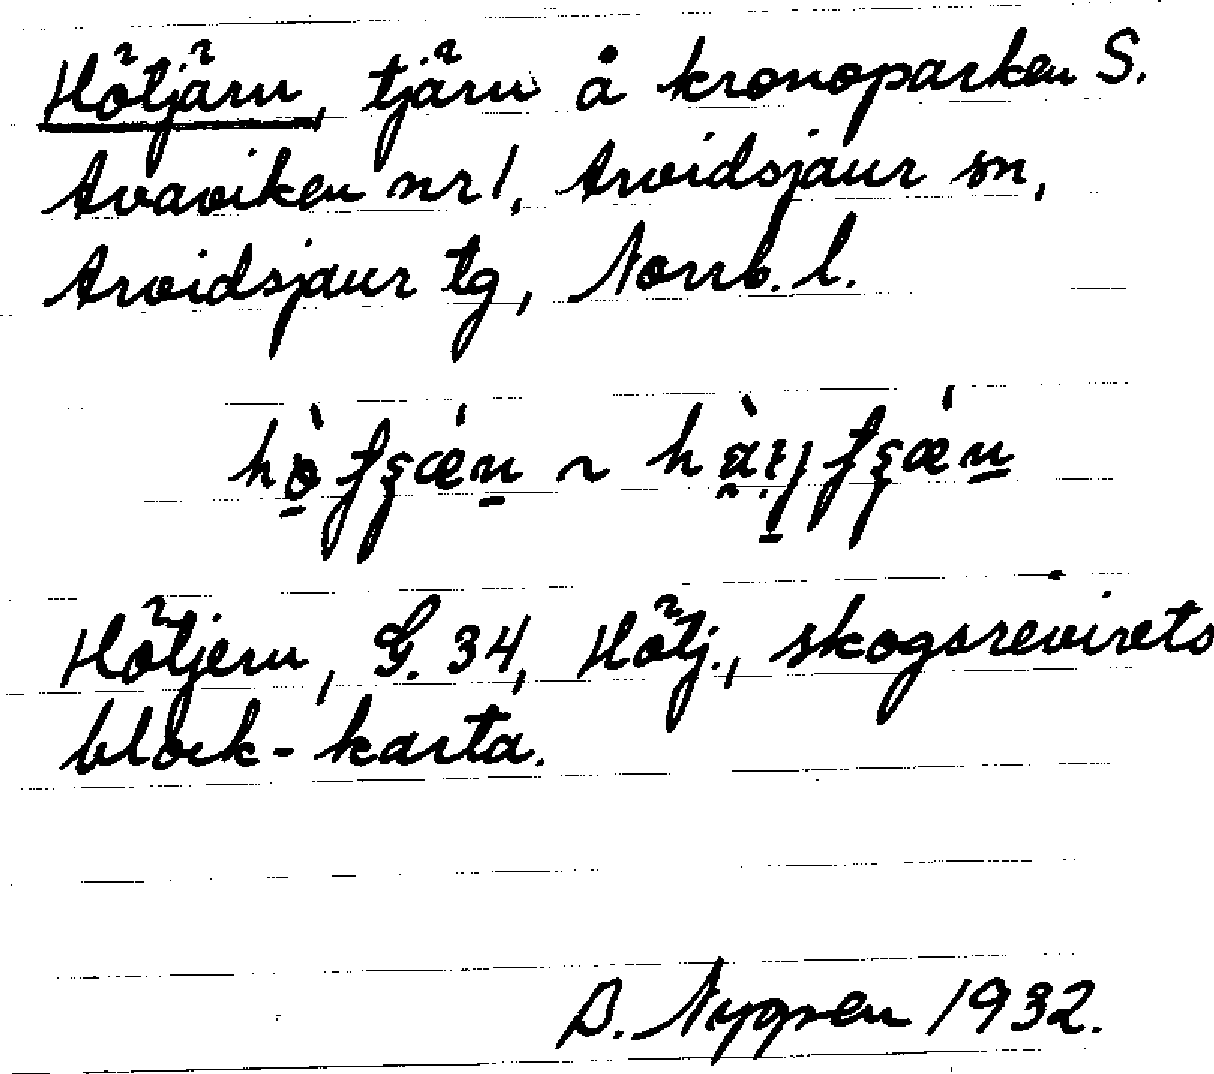 Hötjärn, tjärn å kronoparken S.
Avaviken nr 1, Arvidsjaur sn,
Arvidsjaur tg, Norrb. l.
Hötjern, G. 34, Hötj., skogsrevirets
block-karta.
D. Nygren 1932.